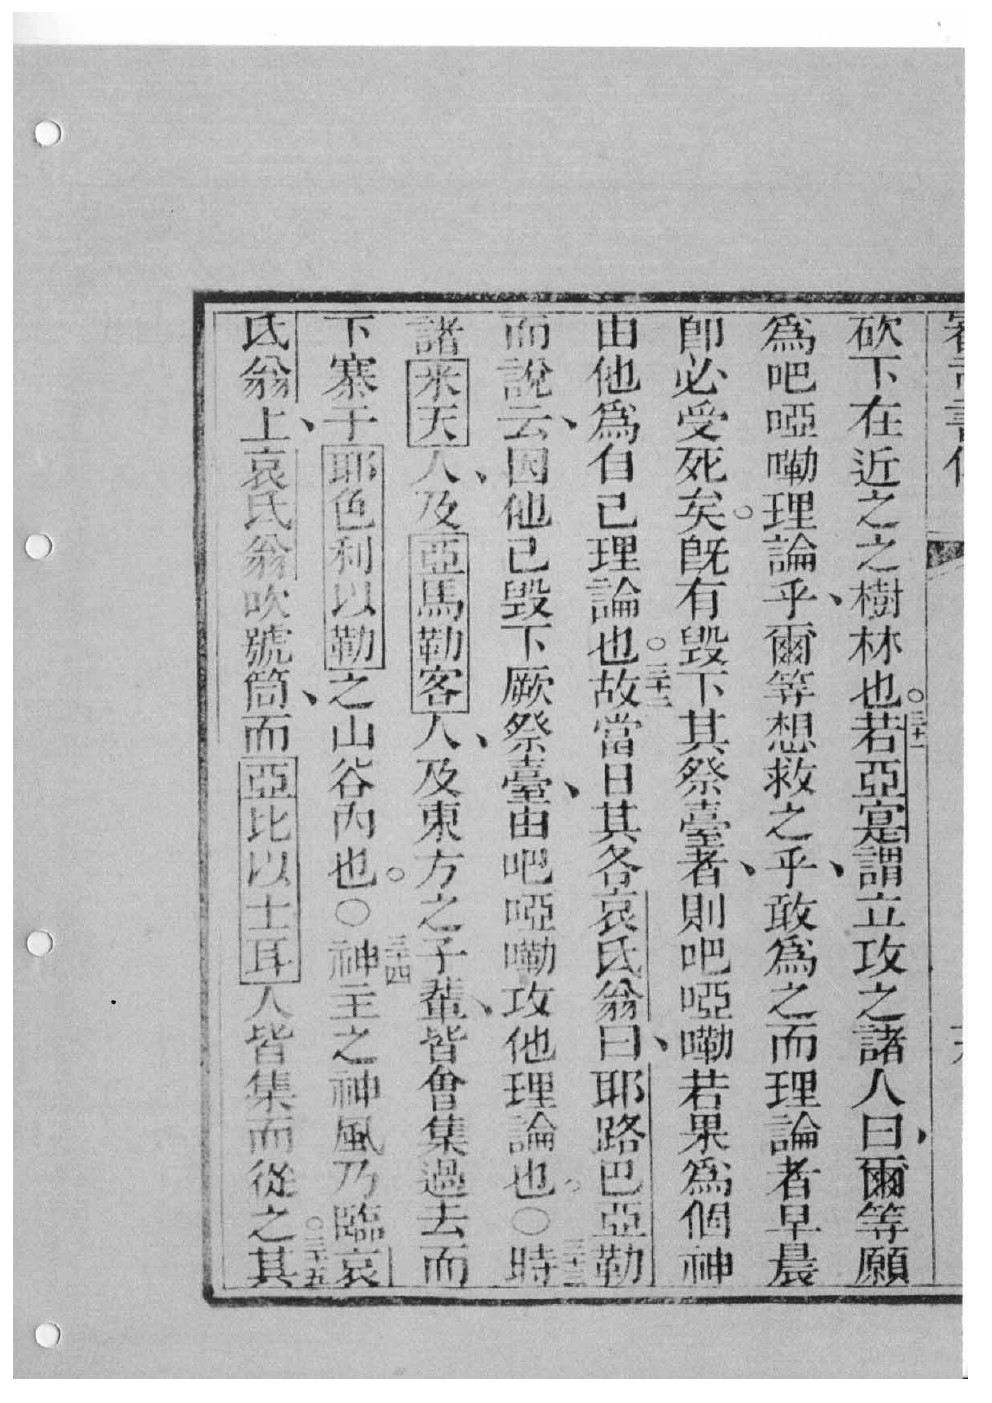 砍下在近之之樹林也。三十一若亞寔謂立攻之諸人曰爾等願
爲吧啞嘞理論乎、爾等想救之乎、敢爲之而理論者早晨
卽必受死矣。旣有毀下其祭臺者、則吧啞嘞若果爲個神
由他爲自已理論也。三十二故當日其名哀氏翁曰、耶路巴亞勒
而說云、因他已毀下厥祭臺、由吧啞嘞攻他理論也。〇三十三時
諸米天人、及亞馬勒客人、及東方之子輩、皆會集過去而
下寨于耶色利以勒之山谷內也。〇三十四神主之神風乃臨哀
氏翁、上哀氏翁吹號筒、而亞比以士耳人皆集而從之。三十五其